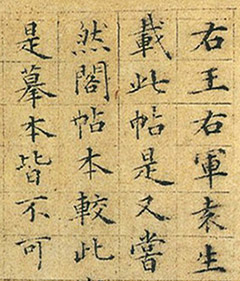 右王右軍袁生
載此帖是又嘗
然閣帖本較此
是摹本皆不可